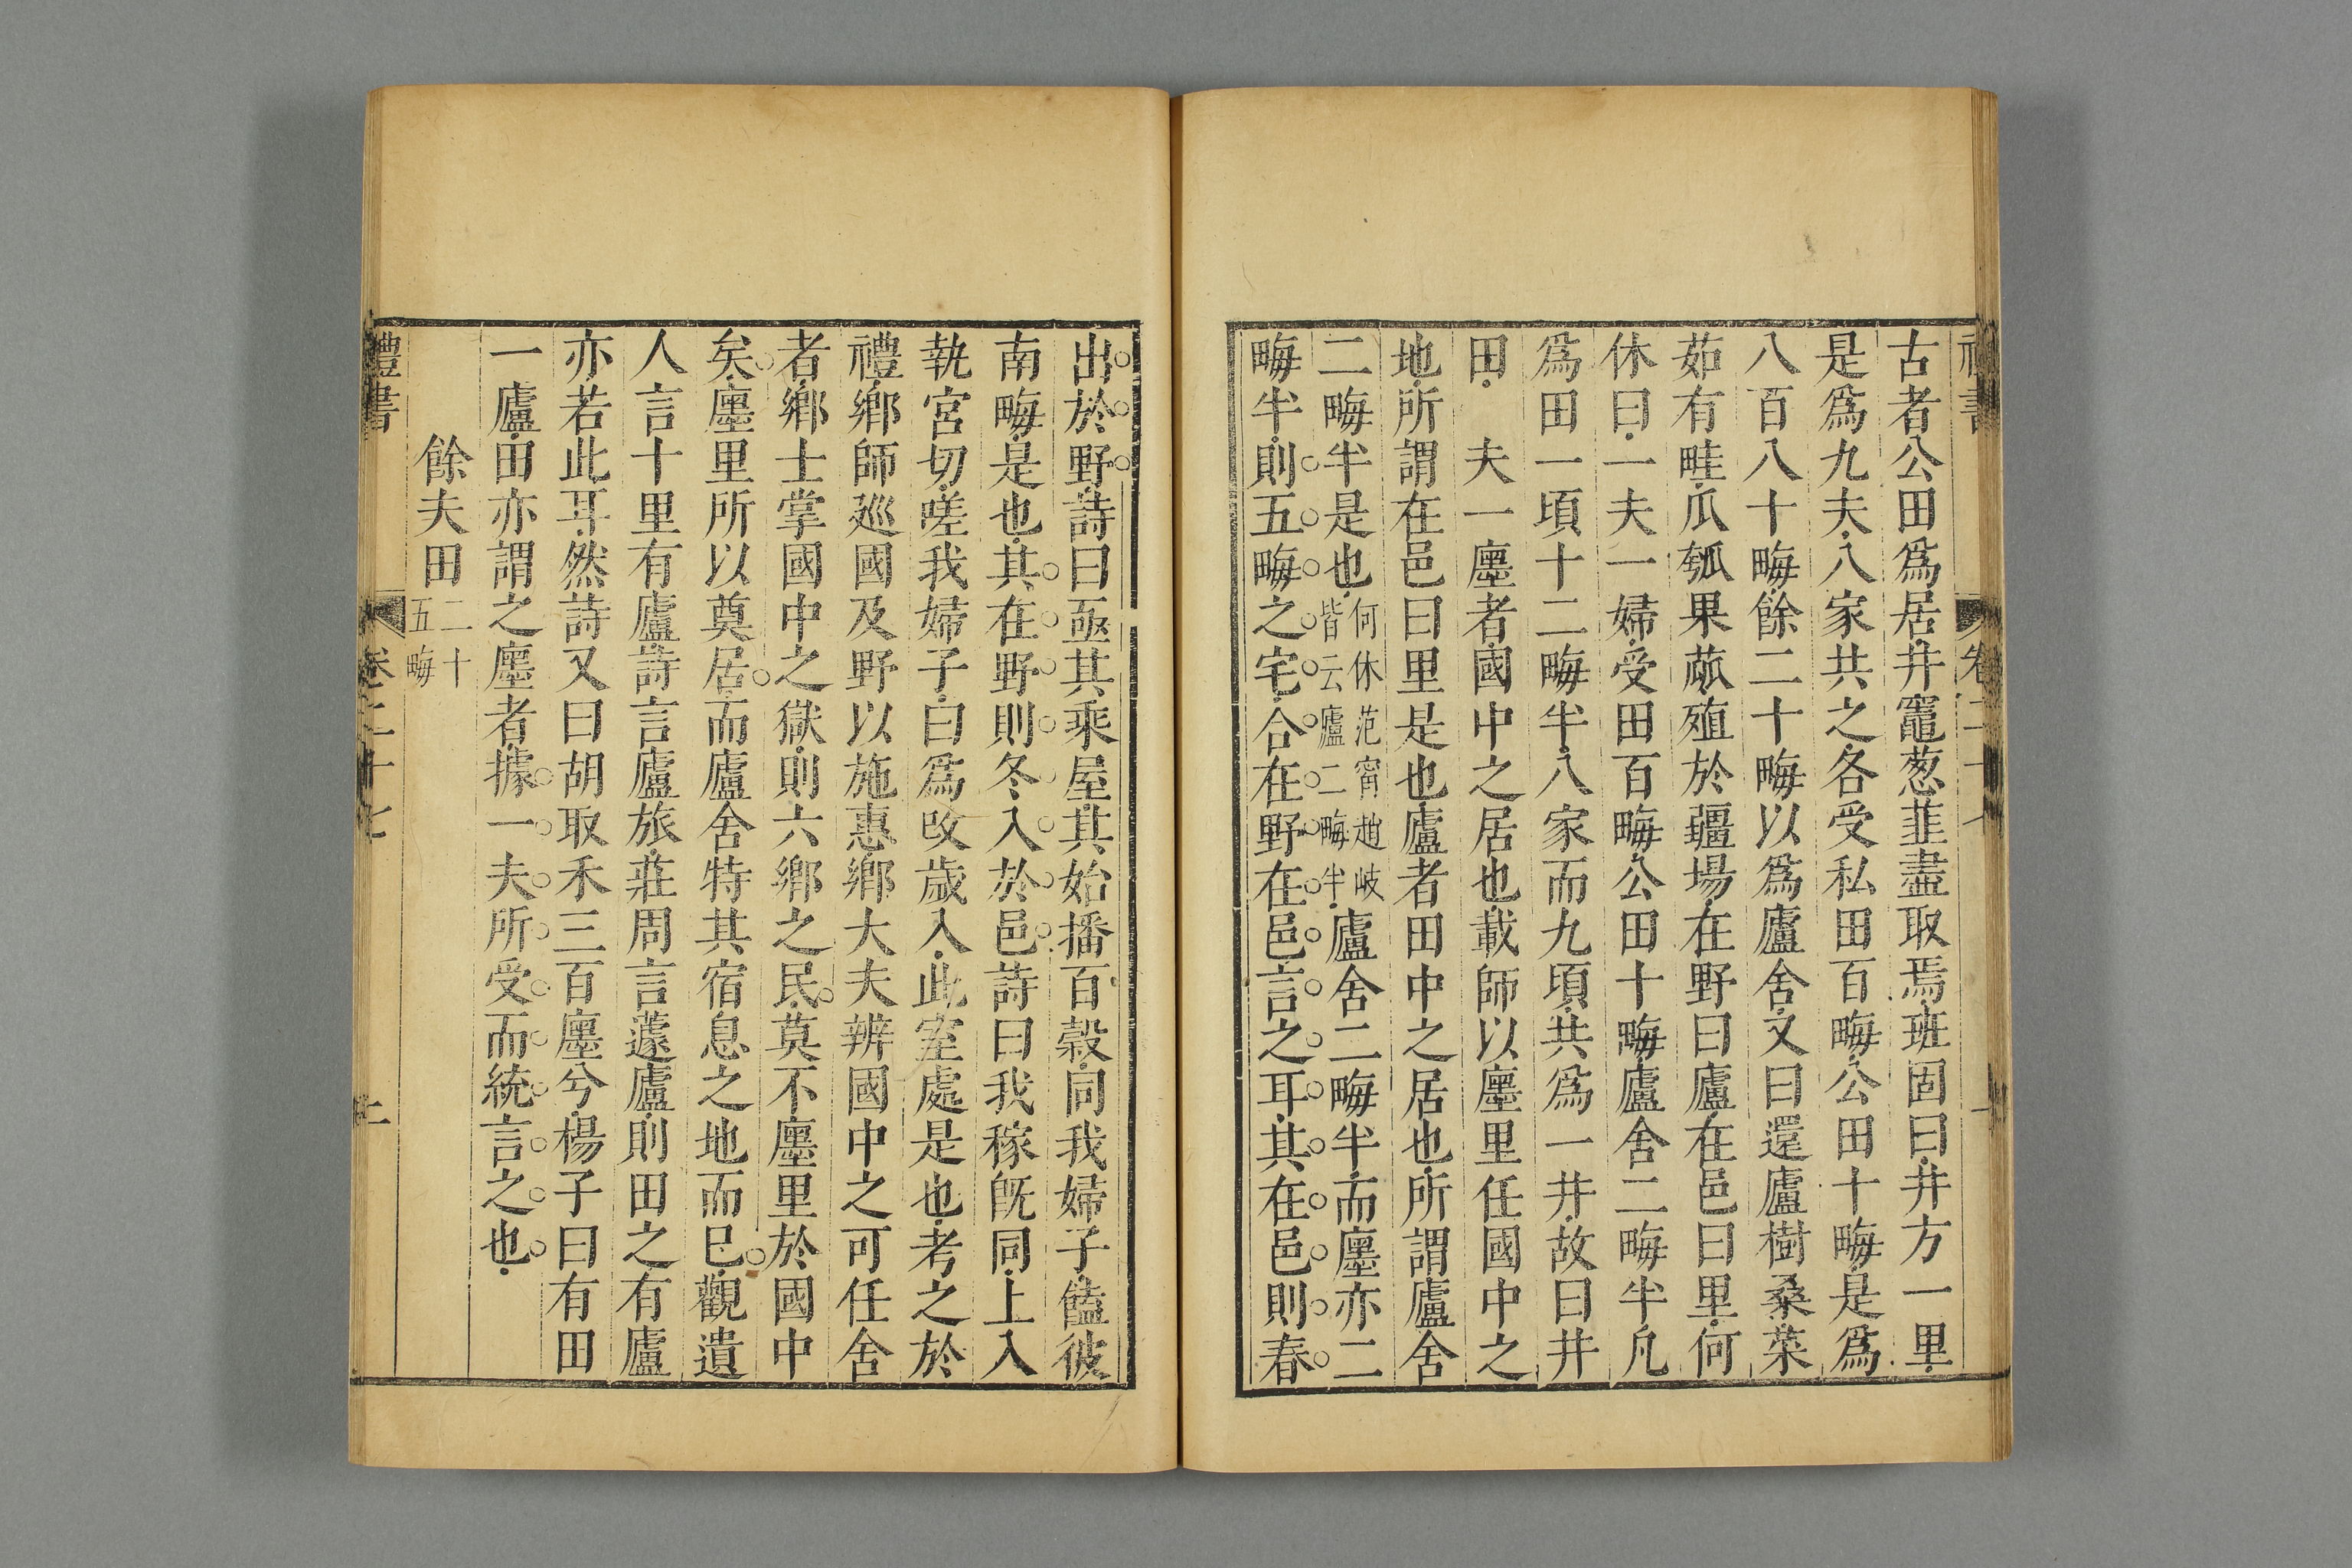 古者公田爲居井竈葱韮盡取焉班固曰井方一里
是爲九夫八家共之各受私田百畮公田十畮是爲
八百八十畮餘二十畮以爲廬舍又曰還廬樹桑菜
茹有畦瓜瓠果蓏殖於疆埸在野曰廬在邑曰里何
休曰一夫一婦受田百畮公田十畮廬舍二畮半凡
爲田一頃十二畮半八家而九頃共爲一井故曰井
田 夫一廛者國中之居也載師以廛里任國中之
地所謂在邑曰里是也廬者田中之居也所謂廬舍
二畮半是也何休范甯趙岐皆云廬二畮半廬舍二畮半而廛亦二
畮半則五畮之宅合在野在邑言之耳其在邑則春
出於野詩曰亟其乘屋其始播百糓同我婦子饁彼
南畮是也其在野則冬入於邑詩曰我稼旣同上入
執宮㓛嗟我婦子曰爲改歲入此室處是也考之於
禮鄉師廵國及野以施惠鄉大夫辨國中之可任舍
者鄉士掌國中之獄則六鄉之民莫不廛里於國中
矣廛里所以奠居而廬舍特其宿息之地而已觀遺
人言十里有廬詩言廬旅莊周言蘧廬則田之有廬
亦若此耳然詩又曰胡取禾三百廛兮楊子曰有田
一廬田亦謂之廛者據一夫所受而統言之也
餘夫田二十五畮
禮書 卷二十七 二